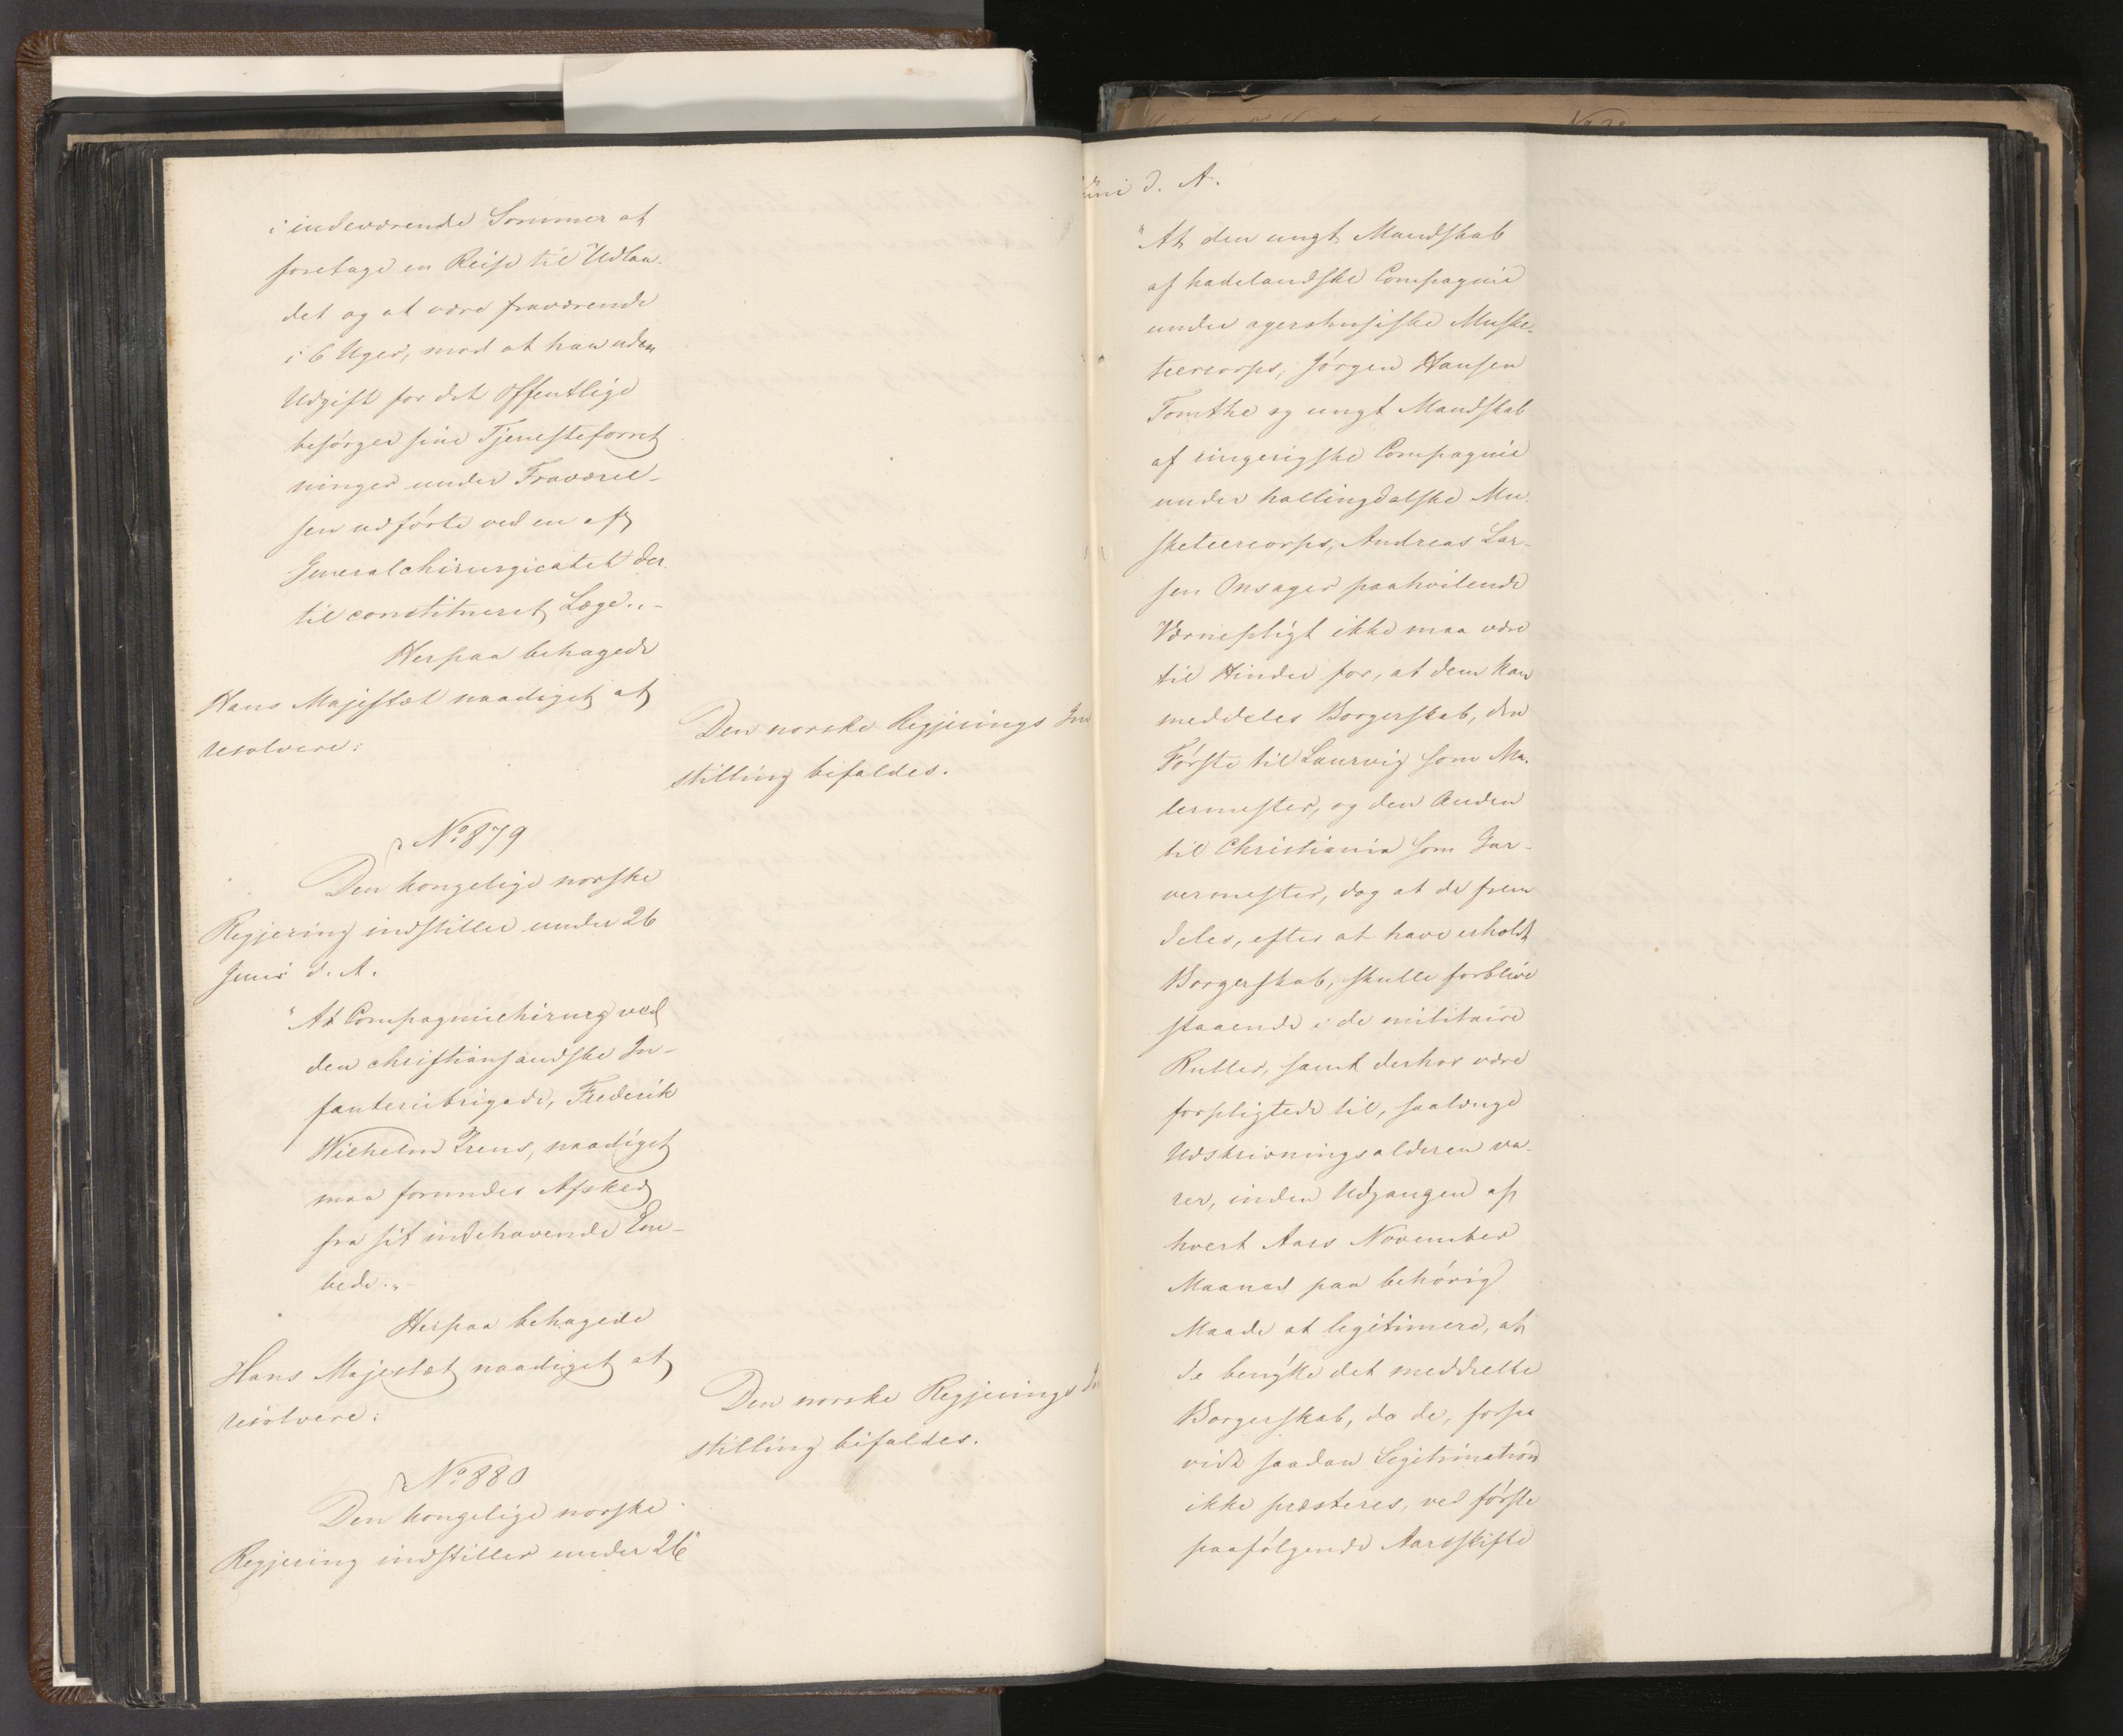 i indeværende Sommer at
foretage en Reise til Udlan-
det og at være fraværende
i 6 Uger, mod at han uden
Udgift for det Offentlige
besørger sine Tjenesteforret
ninger under Fraværel-
sen udførte ved en af
Generalchirurgicatet der
til constitueret Læge."-
Herpaa behagede
Hans Majestæt naadigst at
resolvere:
Den norske Regjerings In
stilling bifaldes.
No 879
Den kongelige norske
Regjering indstiller under 26
Juni d. A.
"At Compagnichirurg ved
den christiansandske In-
fanteribrigade, Frederik
Wilhelm Irens, naadigst
maa forundes Afsked
fra sit indehavende Em-
bede."-
Herpaa behagede
Hans Majestæt naadigst at
resolvere:
Den norske Regjerings In
stilling bifaldes.
No 880
Den kongelige norske
Regjering indstiller under 26
Juni d. A.
"At den ungt Mandskab
af hadelandske Compagnie
under agershusiske Muske-
teercorps, Jörgen Hansen
Tomthe og ungt Mandskab
af ringerigske Compagnie
under hallingdalske Mu-
sketeercorps, Andreas Lar-
sen Onsager paahvilende
Værnepligt ikke maa være
til Hinder for, at dem kan
meddeles Borgerskab, den
Første til Laurvig som Ma-
lermester, og den Anden
til Christiania som Gar-
vermester, dog at de frem
deles, efter at have erholdt
Borgerskab, skulle forblive
staaende i de militaire
Ruller, samt derhos være
forpligtede til, saalænge
Udskrivningsalderen va-
rer, inden Udgangen af
hvert Aars November
Maaned paa behørig
Maade at legitimere, at
de benytte det meddeelte
Borgerskab, da de, forsaa
vidt saadan Legitimation
ikke præsteres, ved første
paafølgende Aarsskifte